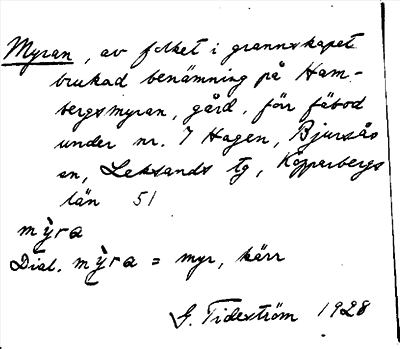 Myran, av folket i grannskapet
brukad benämning på Ham-
bergsmyran, gård, förr fäbod
under nr. 7 Hagen, Bjursås
sn, Leksands tg, Kopparbergs
län 51
mỳra
Dial. mỳra = myr, kärr
G. Tideström 1928